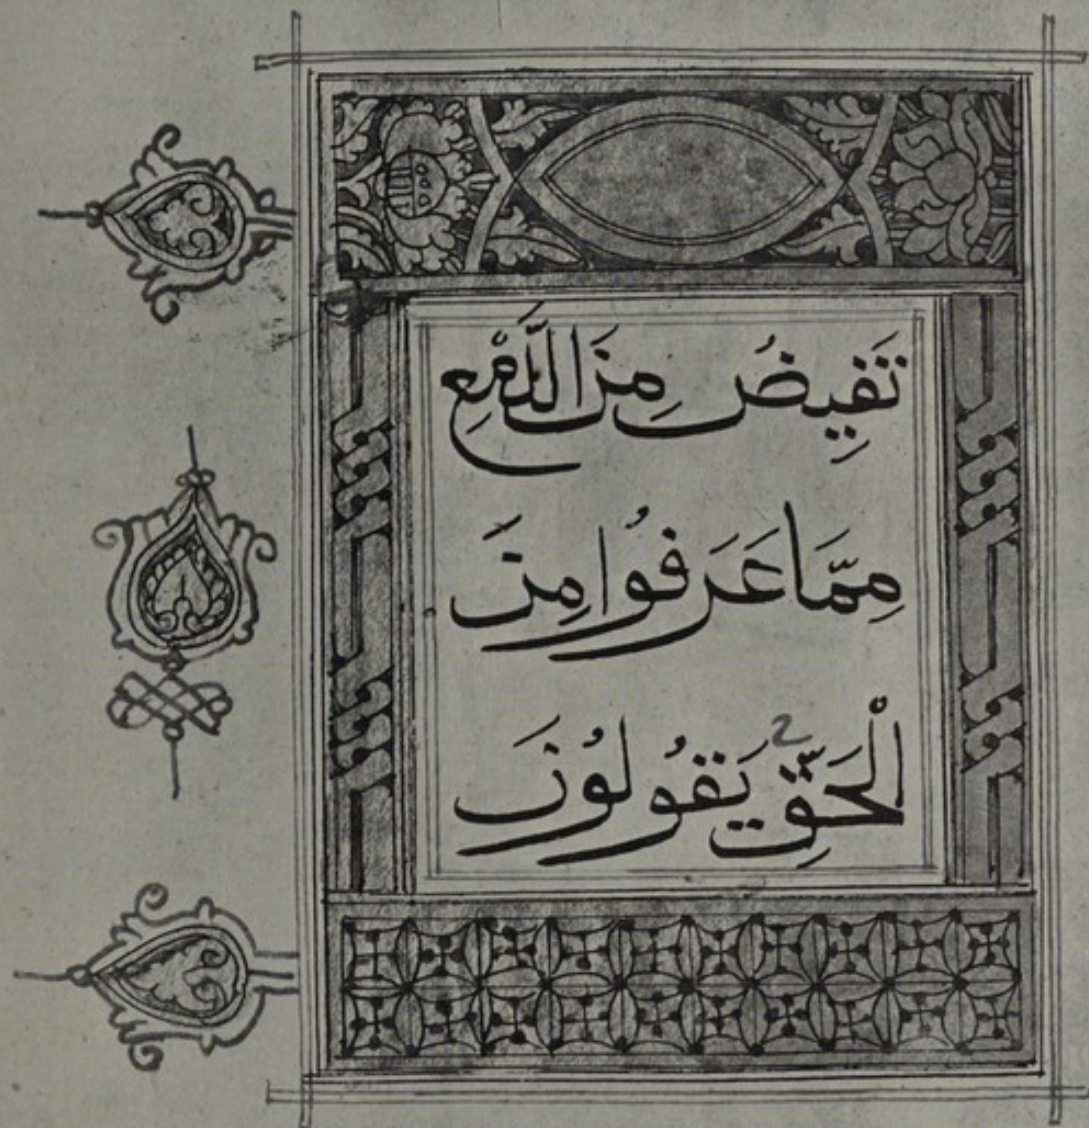 تَفِيضُ مِنَ الدَّمْعِ
مِمَّا عَرَفُوا مِنَ
الْحَقِّ يَقُولُونَ